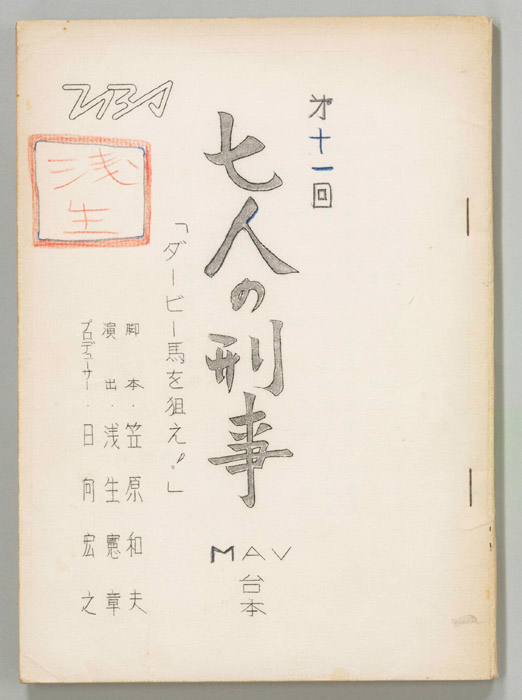 才十一回
七人の刑事
「ダービー馬を狙え!」
脚本・笠原和夫
演出・浅生憲章
プロデューサー・日向宏之
MAV
台本
TBS
浅生